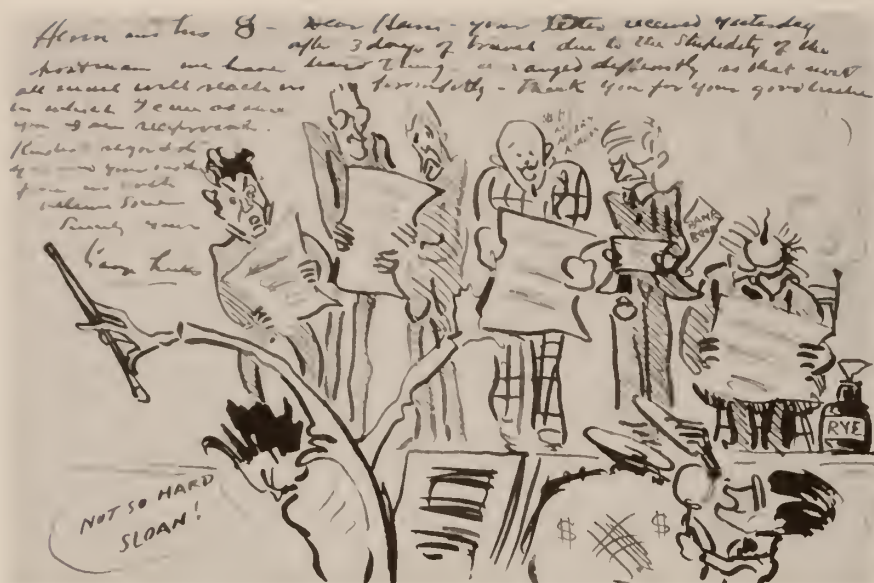 Henri and his 8 - Dear Henri - your letter received yesterday
after 3 days of travel due to the stupidity of the
postman we have things arranged differently so that
all mail will reach us promptly - thank you for your good wishes
in which I can assure
you I am reciprocated.
Kindest regards to
you and your mother
from us both
Sincerely yours
George Luks
BANK
BOOK
RYE
NOT SO HARD
SLOAN!
$ $